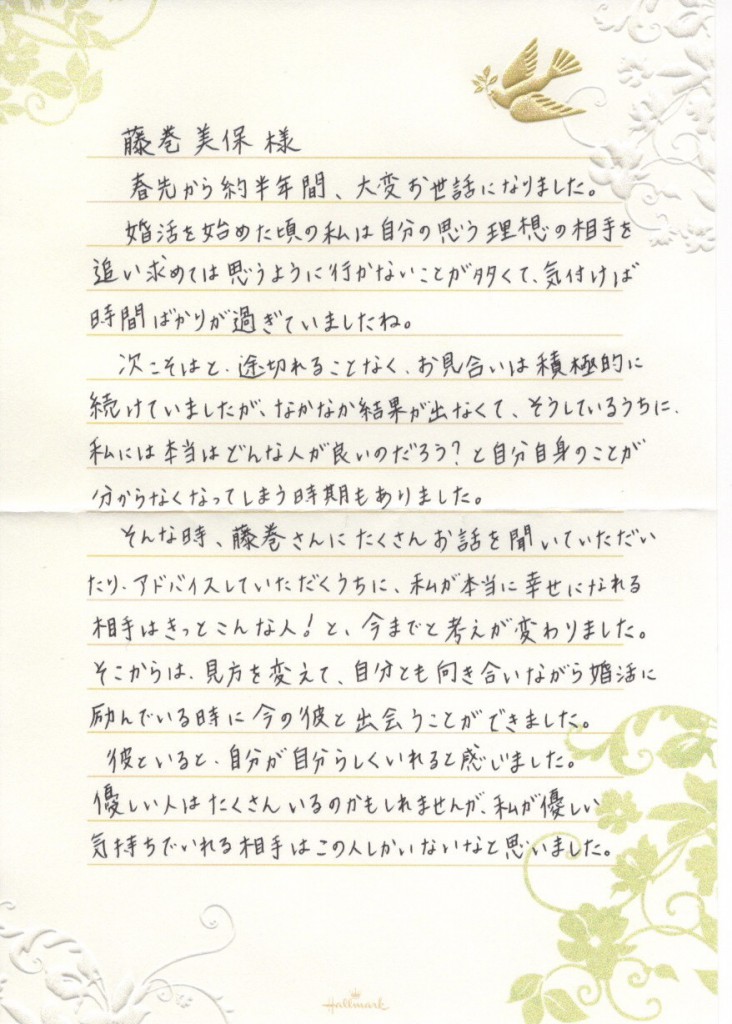 藤巻 美保 様
春先から約半年間、大変お世話になりました。
婚活を始めた頃の私は自分の思う理想の相手を
追い求めては思うように行かないことが多くて、気付けば
時間ばかりが過ぎていましたね。
次こそはと、途切れることなく、お見合いは積極的に
続けていましたが、なかなか結果が出なくて、そうしているうちに、
私には本当はどんな人が良いのだろう?と自分自身のことが
分からなくなってしまう時期もありました。
そんな時、藤巻さんにたくさんお話を聞いていただい
たり、アドバイスしていただくうちに、私が本当に幸せになれる
相手はきっとこんな人!と、今までと考えが変わりました。
そこからは、見方を変えて、自分とも向き合いながら婚活に
励んでいる時に今の彼と出会うことができました。
彼といると、自分が自分らしくいれると感じました。
優しい人はたくさんいるのかもしれませんが、私が優しい
気持ちでいれる相手はこの人しかいないなと思いました。
Hallmark